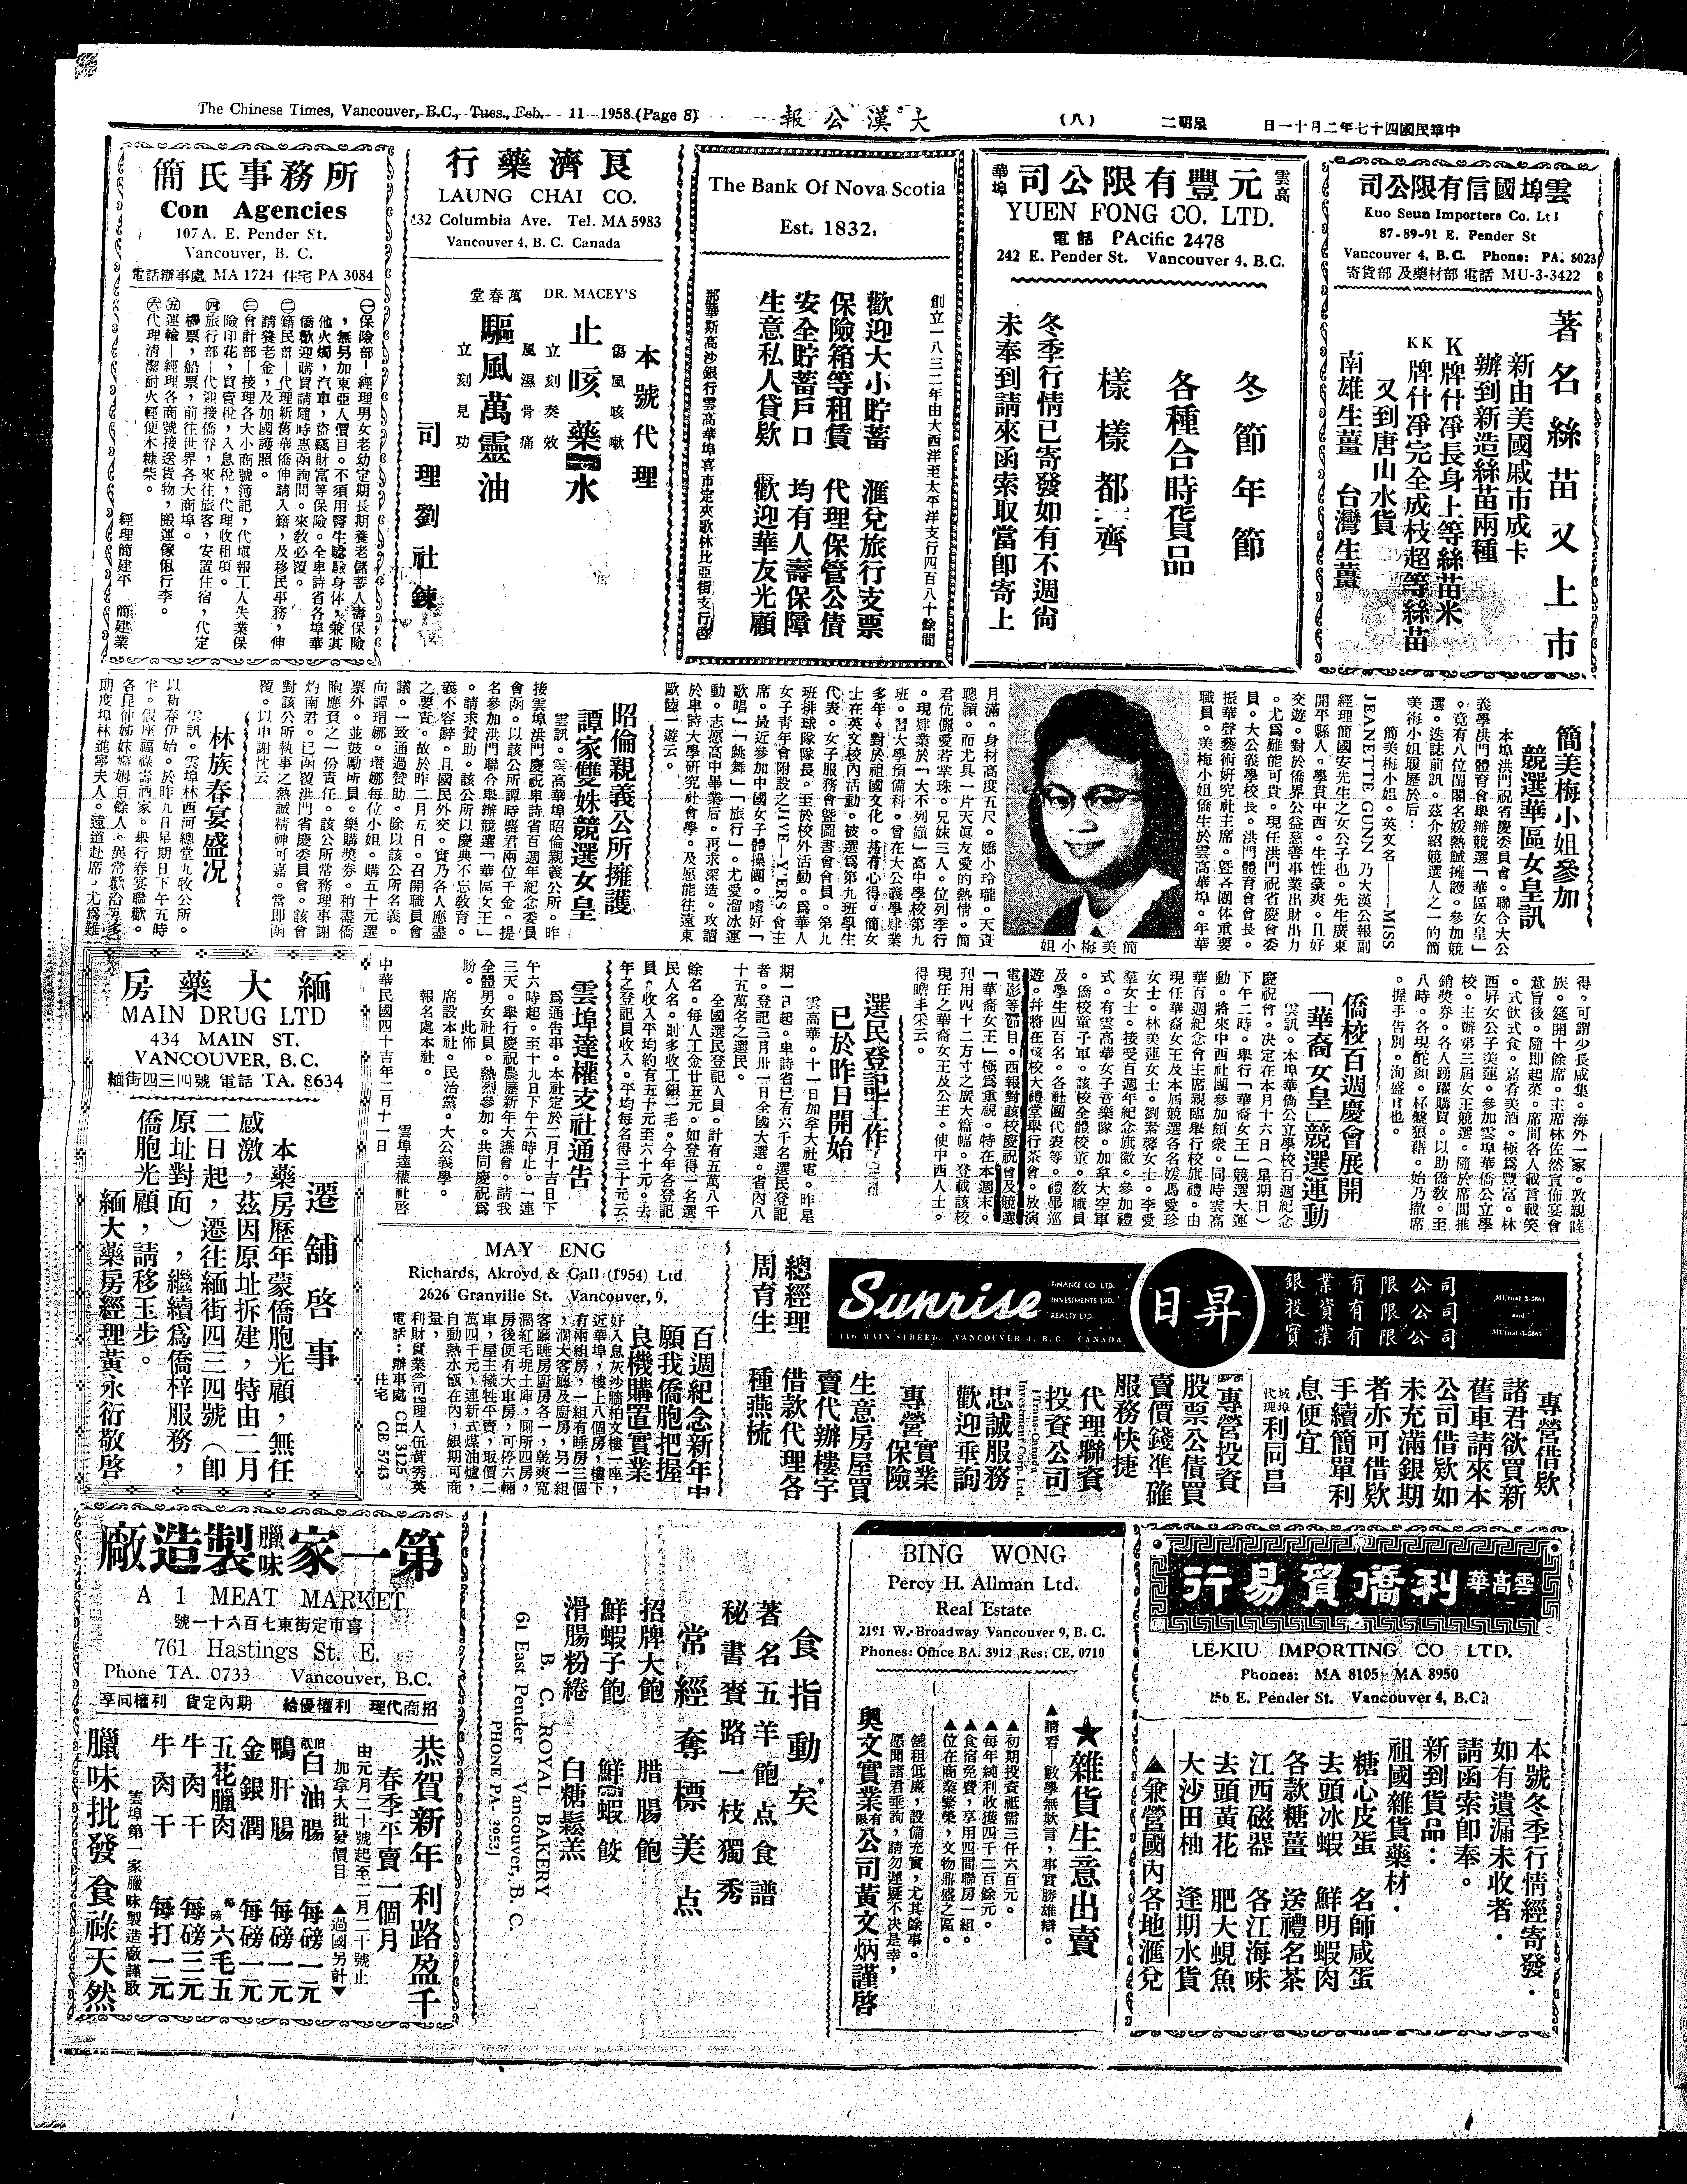 The Chinese Times, Vancouver, B.C., Tues., Feb. 11 1958 (Page 8)
大漢公報
(八)
星期二
中華民國四十七年二月十一日
雲埠國信有限公司
Kuo Seun Importers Co. Ltd
87-89-91 E. Pender St
Vancouver 4, B.C. Phone: PA. 6023
寄貨部及藥材部電話 MU-3-3422
著名絲苗又上市
新由美國戚市成卡
辦到新造絲苗兩種
K牌什凈長身上等絲苗米
KK牌什凈完全成枝超等絲苗
又到唐山水貨
南雄生薑 台灣生薑
雲高華埠
元豐有限公司
YUEN FONG CO. LTD.
電話 PAcific 2478
242 E. Pender St. Vancouver 4, B.C.
冬節年節
各種合時貨品
樣樣都齊
冬季行情已寄發如有不週尙
未奉到請來函索取當即寄上
The Bank Of Nova Scotia
Est. 1832,
創立一八三二年由大西洋至太平洋支行四百八十餘間
歡迎大小貯蓄 滙兌旅行支票
保險箱等租賃 代理保管公債
安全貯蓄戶口 均有人壽保障
生意私人貸欵 歡迎華友光顧
那華斯高沙銀行雲高華埠喜市定夾歌林比亞街支行啓
良濟藥行
LAUNG CHAI CO.
432 Columbia Ave. Tel. MA 5983
Vancouver 4, B. C. Canada
DR. MACEY'S
萬春堂
本號代理
傷風咳嗽
止咳藥水
立刻奏效
風濕骨痛
驅風萬靈油
立刻見功
司理劉社鍊
簡氏事務所
Con Agencies
107 A. E. Pender St.
Vancouver, B. C.
電話辦事處 MA 1724 住宅 PA 3084
㊀保險部—經理男女老幼定期長期養老儲蓄人壽保險
，無另加東亞人價目。不須用醫生驗驗身体，兼其
他火燭，汽車，盜竊財富等保險。全卑詩省各埠華
僑歡迎購買請隨時惠函詢問。來敎必覆。
㊁籍民部—代理新舊華僑伸請入籍，及移民事務，伸
請養老金，及加國護照。
㊂會計部—接理各大小商號簿記，代塡報工人失業保
險印花，買賣稅，入息稅，代理收租項。
㊃旅行部—代迎接僑眷，來往旅客，安置住宿，代定
機票，船票，前往世界各大商埠。
㊄運輸—經理各商號接送貨物，搬運傢俬行李。
㊅代理清潔耐火輕便木糠柴。
經理簡建平 簡建業
簡美梅小姐參加
競選華區女皇訊
本埠洪門祝省慶委員會。聯合大公
義學洪門體育會舉辦競選「華區女皇」
。竟有八位閨閣名媛熱誠擁護。參加競
選。迭誌前訊。茲介紹競選人之一的簡
美梅小姐履歷於后：
簡美梅小姐。英文名——MISS
JEANETTE GUNN 乃大漢公報副
經理簡國安先生之女公子也。先生廣東
開平縣人。學貫中西。生性豪爽。且好
交遊。對於僑界公益慈善事業出財出力
。尤爲難能可貴。現任洪門祝省慶會委
員。大公義學校長。洪門體育會會長。
振華聲藝術好究社主席。曁各團体重要
職員。美梅小姐僑生於雲高華埠。年華
簡美梅小姐
月滿。身材高度五尺。嬌小玲瓏。天資
聰頴。而尤具一片天眞友愛的熱情。簡
君伉儷愛若掌珠。兄妹三人。位列季行
。現肄業於「大不列顚」高中學校第九
班。習大學預備科。曾在大公義學肄業
多年。對於祖國文化。甚有心得。簡女
士在英文校內活動。被選爲第九班學生
代表。女子服務會曁圖書會會員。第九
班排球隊隊長。至於校外活動。爲華人
女子青年會附設之JIVE—Y'ERS會主
席。最近參加中國女子體操團。嗜好「
歌唱」「跳舞」「旅行」。尤愛溜冰運
動。志愿高中畢業后。再求深造。攻讀
於卑詩大學研究社會學。及愿能往遠東
歐陸一遊云。
昭倫親義公所擁護
譚家雙妹競選女皇
雲訊。雲高華埠昭倫親義公所。昨
接雲埠洪門慶祝卑詩省百週年紀念委員
會函。以該公所譚時龑君兩位千金。提
名參加洪門聯合舉辦競選「華區女王」
。請求贊助。該公所以慶典不忘敎育。
義不容辭。且國民外交。實乃各人應盡
之要責。故於昨二月五日。召開職員會
議。一致通過贊助。除以該公所名義。
向譚瑁娜。瓓娜每位小姐。購五十元選
票外。並鼓勵所員。樂購獎券。稍盡僑
胞應負之一份責任。該公所常務理事謝
灼南君。已函覆洪門省慶委員會。該會
對該公所執事之熱誠精神可嘉。當即函
覆。以申謝忱云
林族春宴盛况
雲訊。雲埠林西河總堂九牧公所。
以新春伊始。於昨九日星期日下午五時
半。假座福祿壽酒家。舉行春宴聯歡。
得。可謂少長咸集。海外一家。敦親睦
族。筵開十餘席。主席林佐然宣佈宴會
意旨後。隨即起榮。席間各人載言載笑
。式飲式食。嘉肴美酒。極爲豐富。林
西好女公子美蓮。參加雲埠華僑公立學
校。主辦第三屆女王競選。隨於席間推
銷獎券。各人踴躍購買。以助僑敎。至
八時。各現酡顏。杯盤狼藉。始乃撤席
。握手告別。洵盛會也。
僑校百週慶會展開
「華裔女皇」競選運動
雲訊。本埠華僑公立學校百週紀念
慶祝會。决定在本月十六日（星期日）
下午二時。舉行「華裔女王」競選大運
動。將來中西社團參加頗衆。同時雲高
華百週紀念會主席親臨舉行校旗禮。由
現任華裔女王及本屆競選各名媛馬愛珍
女士。林美蓮女士。劉素馨女士。李愛
羣女士。接受百週年紀念旗徽。參加禮
式。有雲高華女子音樂隊。加拿大空軍
。僑校童子軍。該校全體校董。敎職員
及學生四百名。各社團代表等。禮畢巡
遊。幷將在該校大禮堂舉行茶會。放演
電影等節目。西報對該校慶祝會及競選
「華裔女王」極爲重視。特在本週末。
刊用四十二方寸之廣大篇幅。登載該校
現任之華裔女王及公主。使中西人士。
得瞻丰采云。
選民登記工作
已於昨日開始
雲高華。十一日加拿大社電。昨星
期一起。卑詩省已有六千名選民登記
者。登記三月卅一日全國大選。省內八
十五萬名之選民。
全國選民登記人員。計有五萬八千
餘名。每人工金廿五元。如登得一名選
民人名。則多收工銀一毛。今年各登記
員。收入平均約有五十元至六十元。去
年之登記員收入。平均每名得三十元云
雲埠達權支社通告
爲通告事。本社定於二月十吉日下
午六時起。至十九日下午六時止。一連
三天。舉行慶祝農歷新年大讌會。請我
全體男女社員。熱烈參加。共同慶祝爲
盼。 此佈
席設本社。民治黨。大公義學。
報名處本社。
雲埠達權社啓
中華民國四十吉年二月十一日
緬大藥房
MAIN DRUG LTD
434 MAIN ST.
VANCOUVER, B.C.
緬街四三四號 電話 TA. 8634
遷舖啓事
本藥房歷年蒙僑胞光顧，無任
感激，茲因原址拆建，特由二月
二日起，遷往緬街四三四號（即
原址對面），繼續爲僑梓服務，
僑胞光顧，請移玉步。
緬大藥房經理黃永衍敬啓
MAY ENG
Richards, Akroyd & Gall (1954) Ltd.
2626 Granville St. Vancouver, 9.
百週紀念新年中
願我僑胞把握
良機購置實業
好入息灰沙牆柏文樓一座，
近華埠，樓上八個房，樓下
有兩組房，一組有睡房三個
，濶大客廳及廚房，另一組
客廳睡房廚房各一，乾爽寬
濶紅毛坭土庫，厠所四房，
房後便有大車房，可停六輛
車，屋主犧牲平賣，取價二
萬四千元，連新式煤油爐，
自動熱水瓶在內，銀期可商
量，
利財實業公司經理人伍黃秀英
電話：辦事處 CH. 3125
住宅 CE 5743
總經理
周育生
Sunrise
FINANCE CO. LTD.
INVESTMENTS LTD.
REALTY LTD.
116 MAIN STREET, VANCOUVER 4, B. C. CANADA
日昇
銀業有限公司
投資有限公司
實業有限公司
MUtual 3-5864
and
MUtual 3-5865
專營借欵
諸君欲買新
舊車請來本
公司借欵如
未充滿銀期
者亦可借欵
手續簡單利
息便宜
代理
利同昌
專營投資
股票公債買
賣價錢準確
服務快捷
代理聯資
投資公司
(Trans-Canada Investment Corp. Ltd.
忠誠服務
歡迎垂詢
專營實業保險
生意房屋買
賣代辦樓宇
借款代理各
種燕梳
雲高華
利僑貿易行
LE-KIU IMPORTING CO LTD.
Phones: MA 8105, MA 8950
256 E. Pender St. Vancouver 4, B.C.
本號冬季行情經寄發．
如有遺漏未收者．
請函索即奉。
新到貨品：
祖國雜貨藥材．
糖心皮蛋 名師咸蛋
去頭冰蝦 鮮明蝦肉
各款糖薑 送禮名茶
江西磁器 各江海味
去頭黃花 肥大蜆魚
大沙田柚 逢期水貨
▲兼營國內各地滙兌
BING WONG
Percy H. Allman Ltd.
Real Estate
2191 W. Broadway Vancouver 9, B. C.
Phones: Office BA. 3912 Res: CE. 0710
★雜貨生意出賣
▲請看—數學無欺言，事實勝雄辯。
▲初期投資祇需三仟六百元。
▲每年純利收獲四千二百餘元。
▲食宿免費，享用四間聯房一組。
▲位在商業繁榮，文物鼎盛之區。
舖租低廉，設備充實，尤其餘事。
愿聞諸君垂詢，請勿遲疑不决是幸，
奥文實業有限公司黃文炳謹啓
食指動矣
著名五羊飽点食譜
秘書賽路一枝獨秀
常經奪標美点
招牌大飽 腊腸飽
鮮蝦子飽 鮮蝦餃
滑腸粉綣 白糖鬆羔
B. C. ROYAL BAKERY
61 East Pender Vancouver, B. C.
PHONE PA- 2053
第一家臘味製造廠
A 1 MEAT MARKET
喜市定街東七百六十一號
761 Hastings St. E.
Phone TA. 0733 Vancouver, B.C.
招商代理 利權優給 期內定貨 利權同享
恭賀新年利路盈千
春季平賣一個月
由元月二十號起至二月二十號止
加拿大批發價目 ▲過國另計▼
頂靚白油腸 每磅一元
鴨肝腸 每磅一元
金銀潤 每磅一元
五花臘肉 每磅六毛五
牛肉干 每磅三元
牛肉干 每打一元
雲埠第一家臘味製造廠謹啟
臘味批發 食祿天然